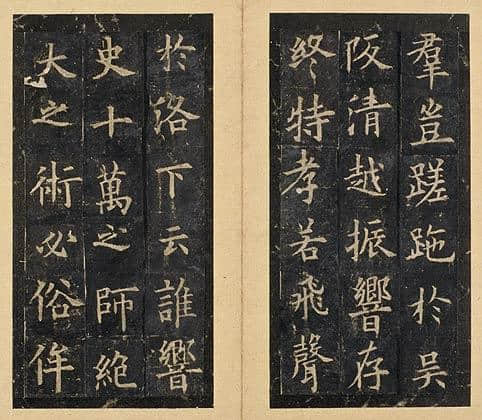 羣豈蹉跎於吳
阪清越振響存
終特孝若飛聲
於洛下云誰響
史十萬之師絶
大之術必俗侔